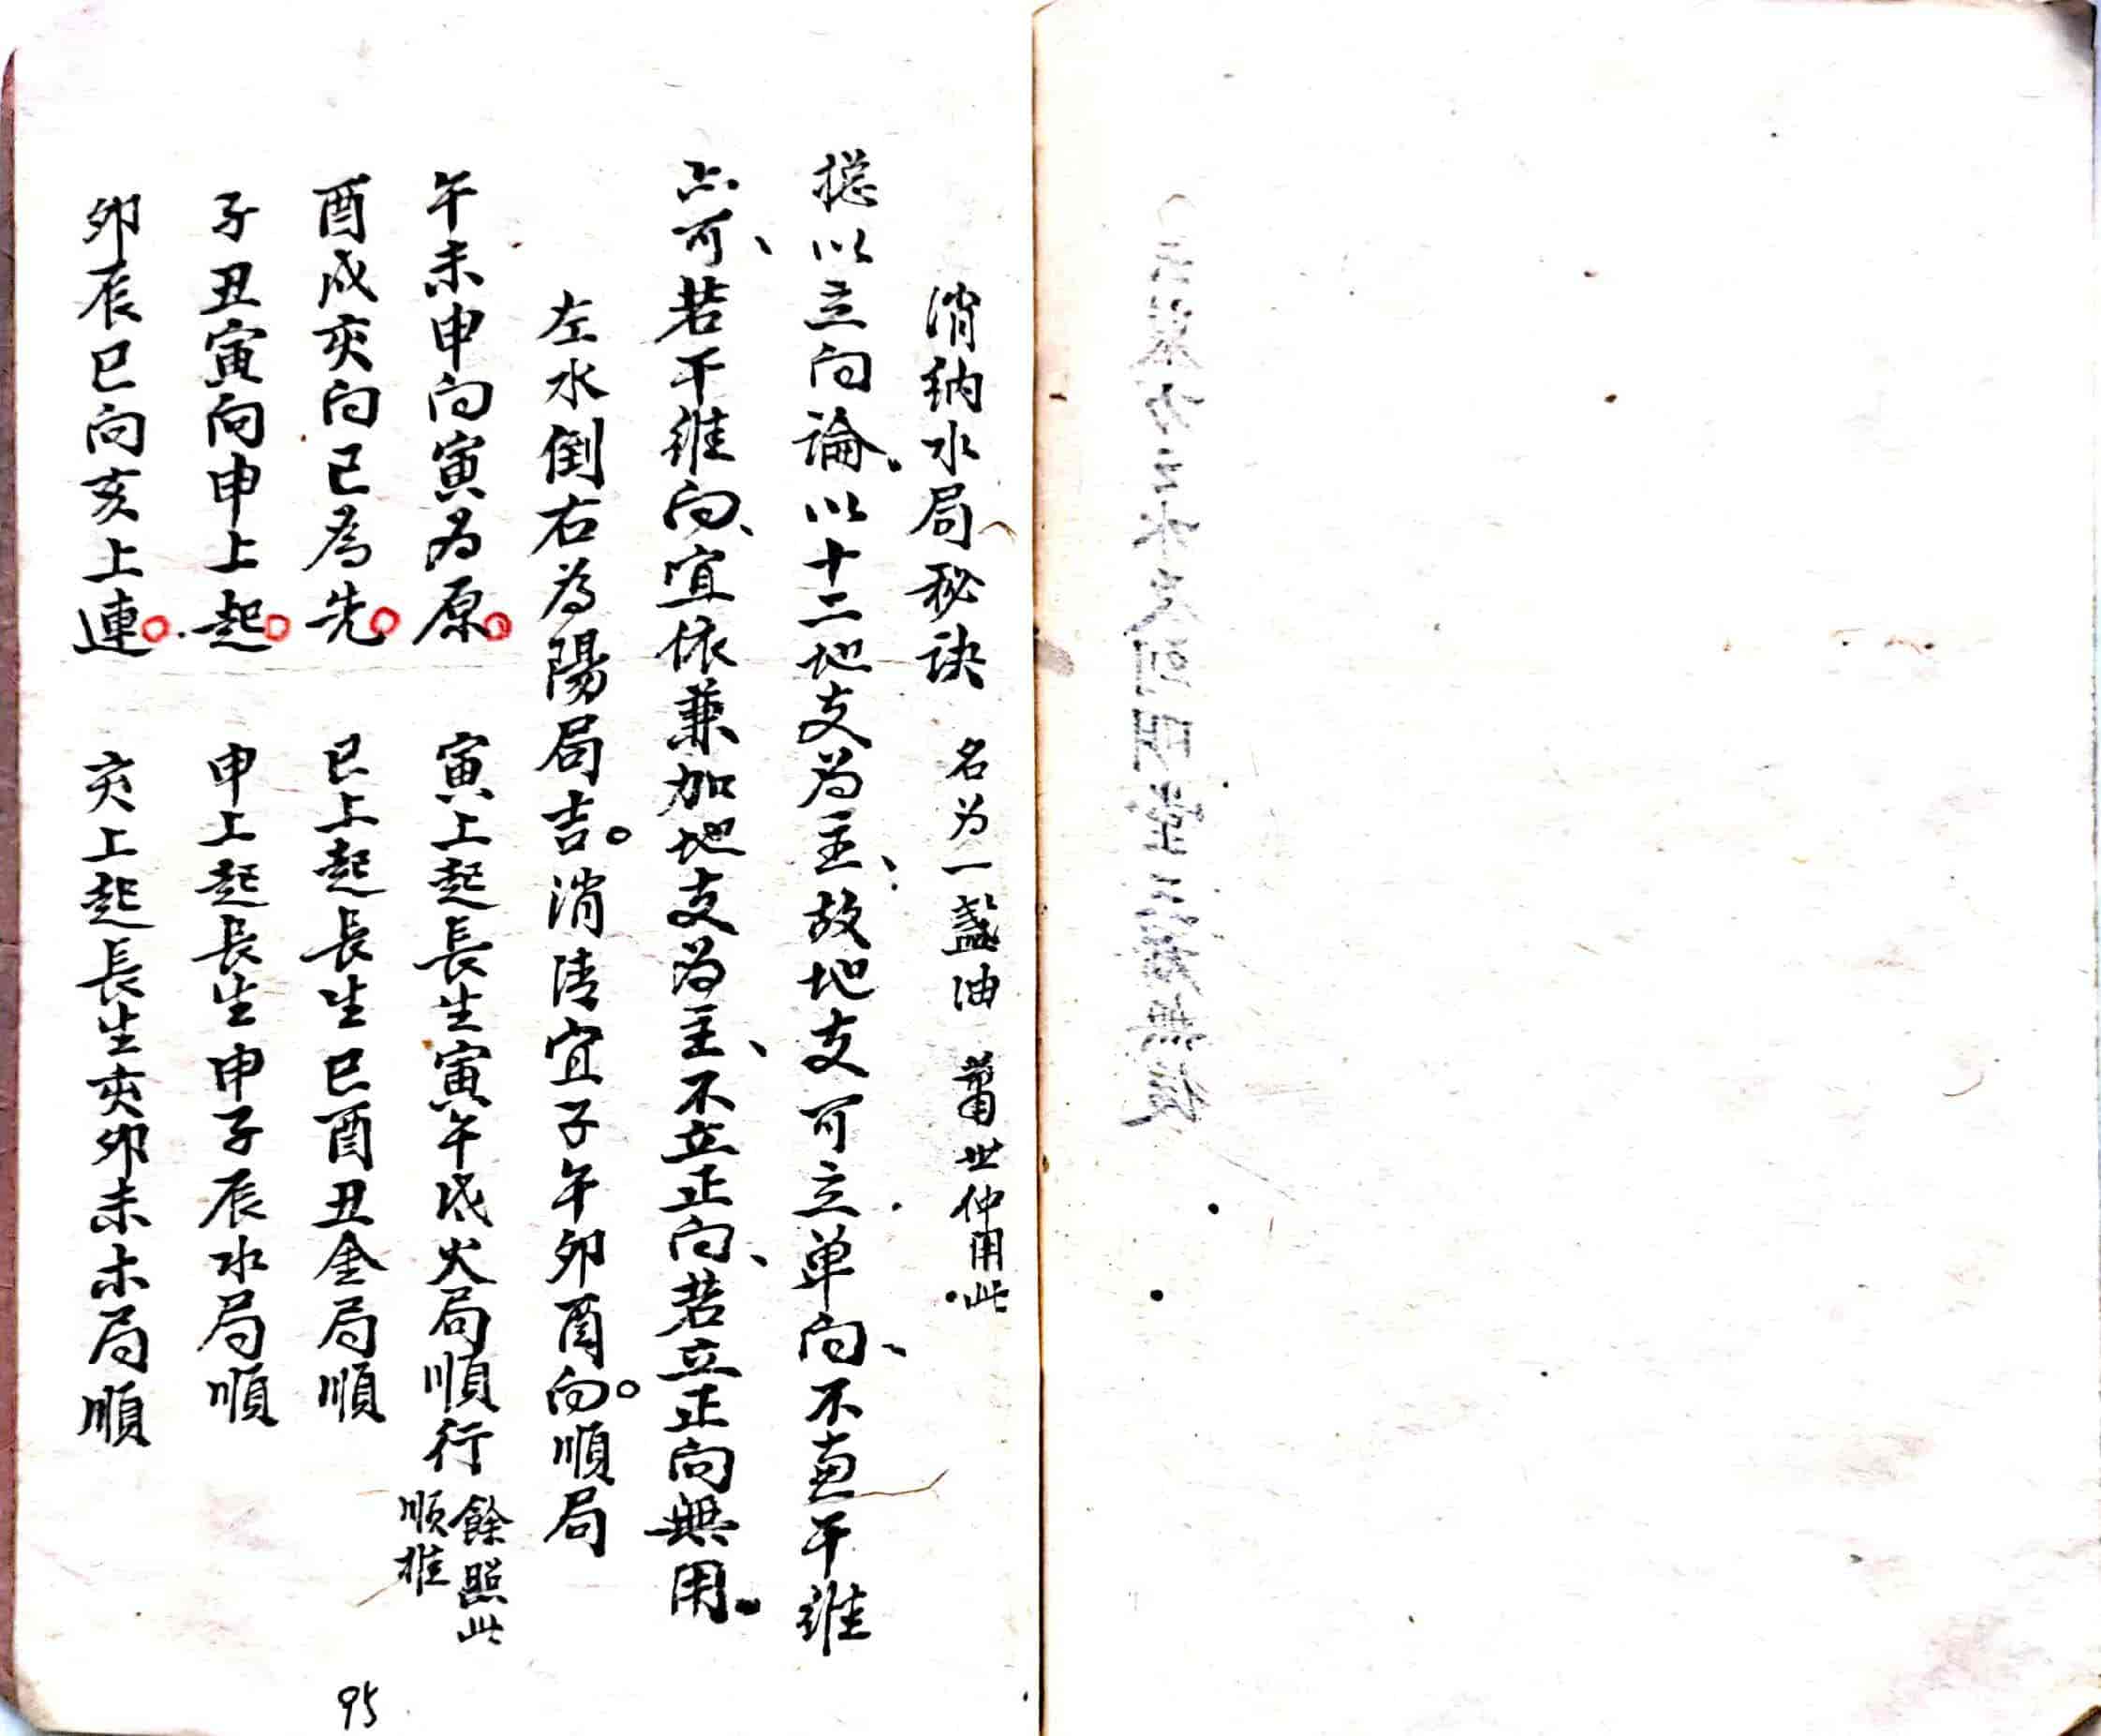 消納水局秘訣　名为一盞油　蕭世仲用此
摠以立向論、以十二地支为主、故地支可立单向、不兼干維
亦可、若干維向、宜依兼加地支为主、不立正向、若立正向無用。
左水倒右為陽局吉。消清宜子午卯酉向。順局
午未申向寅为原。　寅上起長生寅午戌火局順行　餘照此順推
酉戌亥向巳為先。　巳上起長生巳酉丑金局順
子丑寅向申上起。　申上起長生申子辰水局順
卯辰巳向亥上連。　亥上起長生亥卯未木局順
95